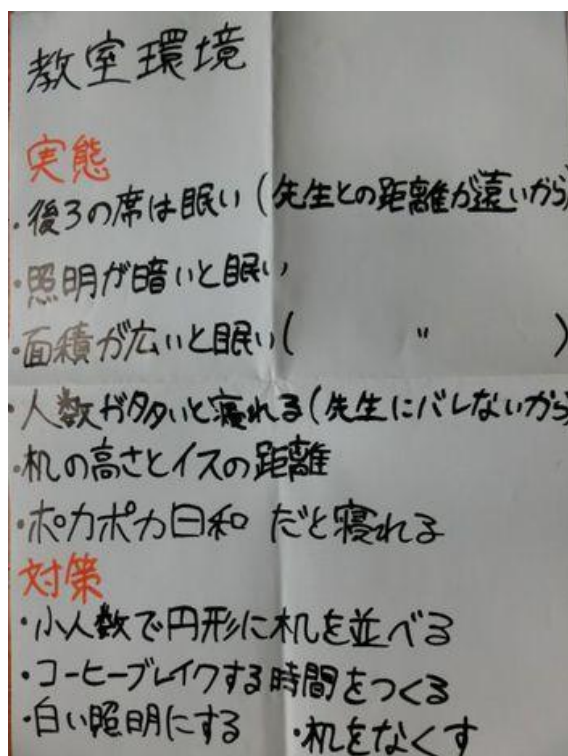 教室環境
実態
・後ろの席は眠い(先生との距離が遠いから)
・照明が暗いと眠い
・面積が広いと眠い( 〃 )
・人数が多いと寝れる(先生にバレないから)
・机の高さとイスの距離
・ポカポカ日和 だと寝れる
対策
・小人数で円形に机を並べる
・コーヒーブレイクする時間をつくる
・白い照明にする ・机をなくす